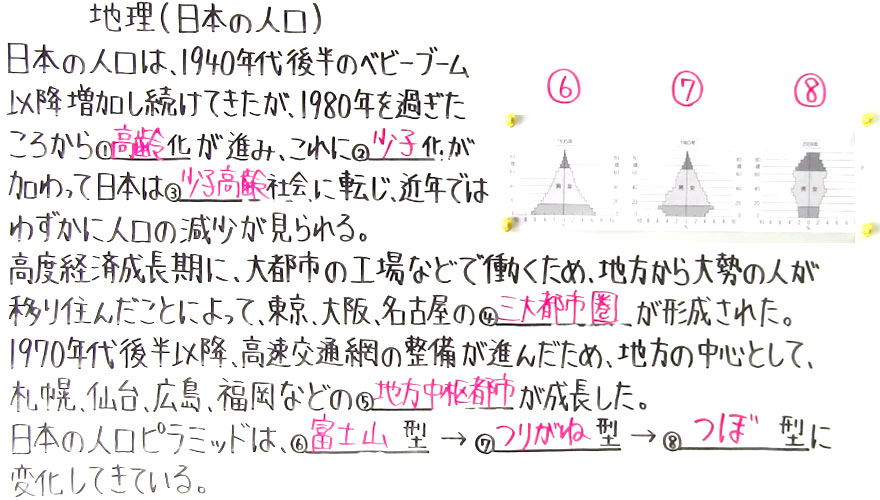 地理(日本の人口)
日本の人口は、1940年代後半のベビーブーム
以降増加し続けてきたが、1980年を過ぎた
ころから①高齢化が進み、これに②少子化が
加わって日本は③少子高齢社会に転じ、近年では
わずかに人口の減少が見られる。
高度経済成長期に、大都市の工場などで働くため、地方から大勢の人が
移り住んだことによって、東京、大阪、名古屋の④三大都市圏が形成された。
1970年代後半以降、高速交通網の整備が進んだため、地方の中心として、
札幌、仙台、広島、福岡などの⑤地方中枢都市が成長した。
日本の人口ピラミッドは、⑥富士山型→⑦つりがね型→⑧つぼ型に
変化してきている。
⑥ ⑦ ⑧
男 女 男 女 男 女